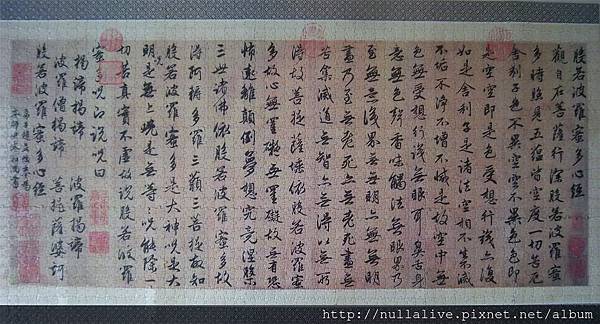 般若波羅蜜多心經
觀自在菩薩行深般若波羅蜜
多時照見五蘊皆空度一切苦厄
舍利子色不異空空不異色色即
是空空即是色受想行識亦復
如是舍利子是諸法空相不生不滅
不垢不淨不增不減是故空中無
色無受想行識無眼耳鼻舌身
意無色聲香味觸法無眼界乃
至無意識界無無明亦無無明
盡乃至無老死亦無老死盡無
苦集滅道無智亦無得以無所
得故菩提薩埵依般若波羅蜜
多故心無罣礙無罣礙故無有恐
怖遠離顛倒夢想究竟涅槃
三世諸佛依般若波羅蜜多故
得阿耨多羅三藐三菩提故知
般若波羅蜜多是大神呪是大
明呪是無上呪是無等等呪能除一
切苦真實不虛故說般若波羅
蜜多呪即說呪曰
揭諦揭諦 波羅揭諦
波羅僧揭諦 菩提薩婆訶
般若波羅蜜多心經
http://nullalive.pixnet.net/album